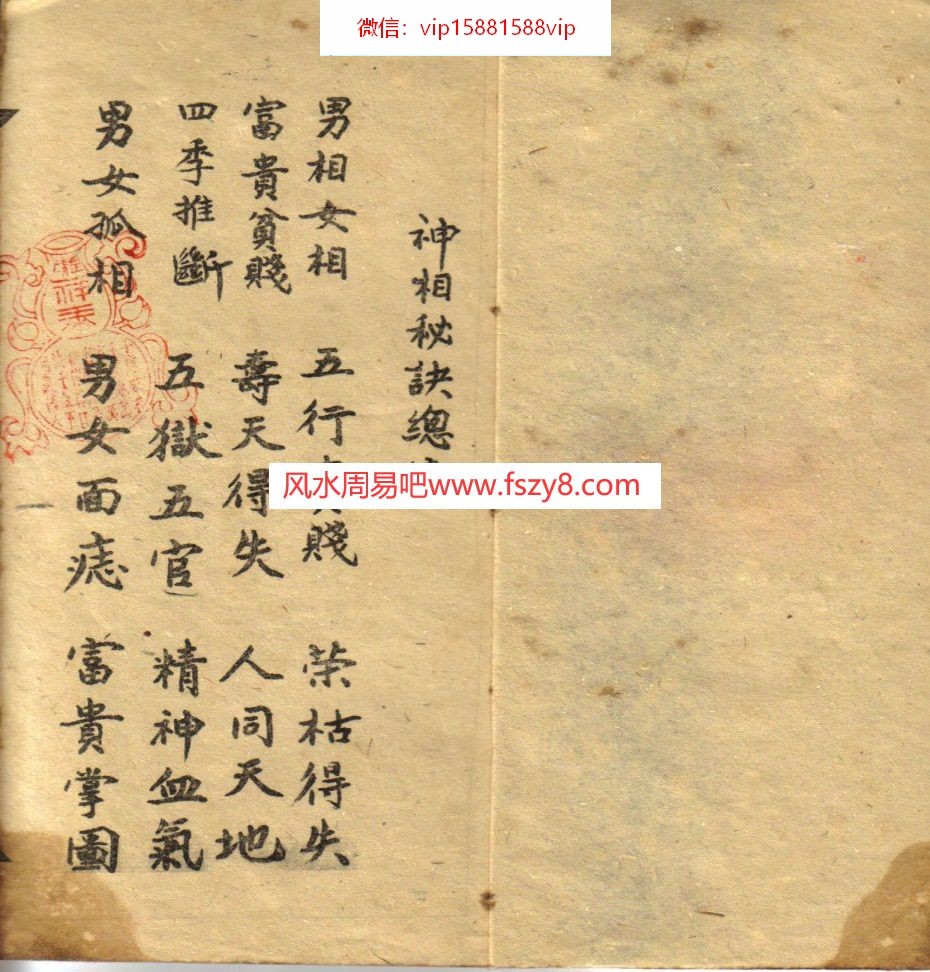 微信：vip15881588vip
神相秘訣總
男相女相 五行 賤 荣枯得失
富貴貧賤 壽夭得失 人同天地
四季推斷 五獄五官 精神血氣
男女孤相 男女面痣 富貴掌圖
一
风水周易吧www.fszy8.com